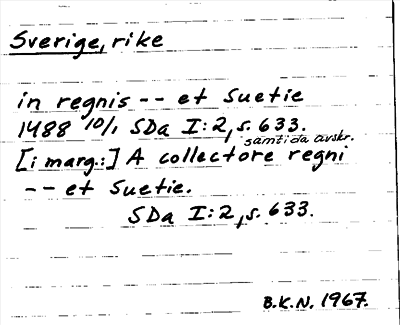 Sverige, rike
in regnis -- et Suetie
1488 10/1 SDa I:2, s. 633.
samtida avskr.
[i marg.:] A collectore regni
-- et Suetie.
SDa I:2, s. 633.
B.K.N. 1967.